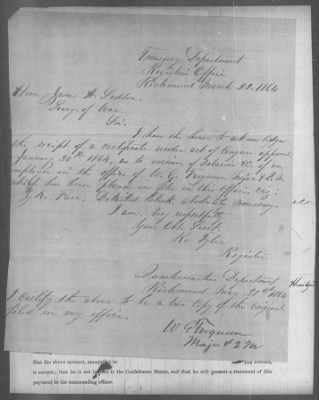 Treasury Department
Register's Office
Richmond March 22. 1864
Hon James A. Seddon
Secy. of War.
Sir.
I have the honor to acknowledge
the receipt of a certificate under act of Congress approved
January 30th 1864, as to increase of Salaries &c. of an
employee in the office of W. G. Ferguson Major & Q.M.
which has been placed on file in this office, viz:
Detailed Clerk, absolutely necessary.
I am, very respectfully
Your Obt. Servt.
Ro Tyler
Register
Quartermasters Department
Richmond 1864
I certify the above to be a true copy of the original
filed in my office.
W G Ferguson
Major & QM
that the above account, amounting to
is correct; that he is not to the Confederate States, and that he will present a statement of this
payment to his commanding officer.